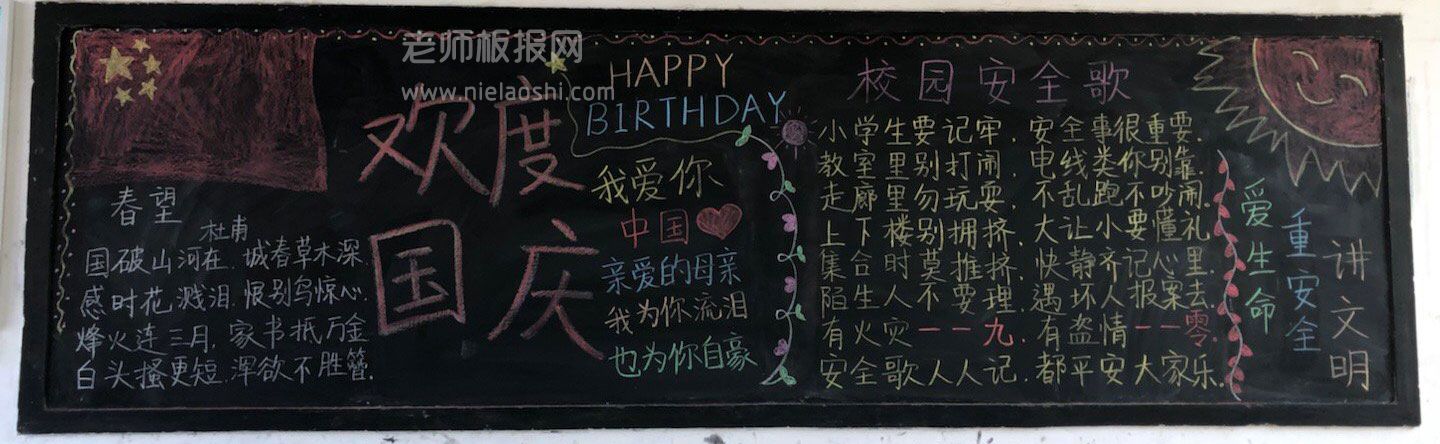 老师板报网
www.nielaoshi.com
春望
杜甫
国破山河在.城春草木深.
感时花.溅泪.恨别鸟惊心.
烽火连三月,家书抵万金
白头搔更短.浑欲不胜簪.
欢度
国庆
HAPPY
BIRTHDAY
我爱你
中国
亲爱的母亲
我为你流泪
也为你自豪
校园安全歌
小学生要记牢,安全事很重要.
教室里别打闹,电线类你别靠.
走廊里勿玩耍,不乱跑不吵闹.
上下楼别拥挤,大让小要懂礼.
集合时莫推挤,快静齐记心里.
陌生人不要理,遇坏人报案去.
有火灾一一九.有盗情一一零.
安全歌人人记.都平安大家乐.
爱生命
重安全
讲文明